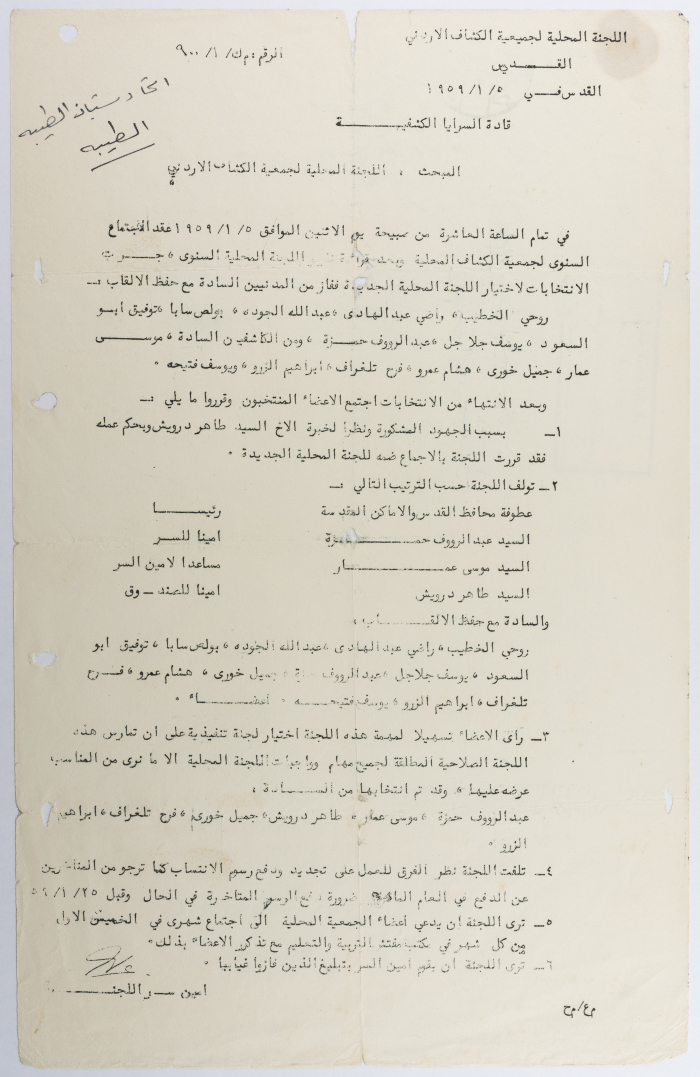 اللجنة المحلية لجمعيية الكشاف الاردني
القـــدس
القدس فـــي ١٩٥٩/١/٥
الرقم : م ك/ ١/ ٩٠٠
اتحاد شبان الطيبه
الطيبه
قادة السرايا الكشفيـــــة
المبحث : اللجنة المحلية لجمعية الكشاف الاردني
في تمام الساعة العاشرة من صبيحة يوم الاثنين الموافق ١٩٥٩/١/٥ عقد الاجتماع
السنوى لجمعية الكشاف المحلية وبعد قراءة اللجنة المحلية السنوى ، جـــرت
الانتخابات لاختيار اللجنة المحلية الجديدة ففاز من المدنيين السادة مع حفظ الالقاب :ـ
روحي الخطيب ، راضي عبد الهادى ، عبد الله الجوده ، بولص سابا ، توفيق ابـــو
السعود ، يوسف جلاجل ، عبد الرووف حمـــزة ، ومن الكاشفين السادة ، موســـى
عمار ، جميل خورى ، هشام عمرو ، فرح تلغراف ، ابراهيم الزرو ، ويوسف فتيحه ٠
وبعد الانتهاء من الانتخابات اجتمع الاعضاء المنتخبون وقرروا ما يلي :ـ
١ـ بسبب الجهود المشكورة ونظرا لخبرة الاخ السيد طاهر درويش وبحكم عمله
فقد قررت اللجنة بالاجماع ضمه للجنة المحلية الجديدة ٠
٢ـ تولف اللجنة حسب الترتيب التالي :ـ
عطوفة محافظ القدس والاماكن المقدسة رئيســـا
السيد عبد الرووف حمـــــــزة امينا للسر
السيد موسى عمـــــــــار مساعدا لامين السر
السيد طاهر درويش امينا للصندـوق
والسادة مع حفظ الالقـــــاب :
روحي الخطيب ، راضي عبد الهادى ، عبد الله الجوده ، بولص سابا ، توفيق ابو
السعود ، يوسف جلاجل ، عبد الرووف حمزة ، جميل خورى ، هشام عمرو ، فـــرح
تلغراف ، ابراهيم الزرو ، يوسف فتيحـــه ، اعضـــــاء ٠
٣ـ رأى الاعضاء تسهيلا لمهمة هذه اللجنة اختيار لجنة تنفيذية على ان تمارس هذه
اللجنة الصلاحية المطلقة لجميع مهام وواجبات اللجنة المحلية الا ما نرى من المناسب
عرضه عليها ، وقد تم انتخابها من الســـــادة :
عبد الرووف حمزة ، موسى عمار ، طاهر درويش ، جميل خورى ، فرح تلغراف ، ابراهيم
الزرو ،
٤ـ تلفت اللجنة نظر الفرق للعمل على تجديد ودفع رسوم الانتساب كما ترجو من المتأخرين
عن الدفع في العام الماضي ضرورة دفع الرسوم المتاخرة في الحال وقبل ٥٩/١/٢٥
٥ـ ترى اللجنة ان يدعي أعضاء الجمعية المحلية الى اجتماع شهرى في الخميس الاول
من كل شهر في مكتب مفتش التربية والتعليم مع تذكير الاعضاء بذلك ٠
٦ـ ترى اللجنة ان يقوم أمين السر بتبليغ الذين فازوا غيابيا ٠
امين ســر اللجنـــــــة
م ع/ م ح